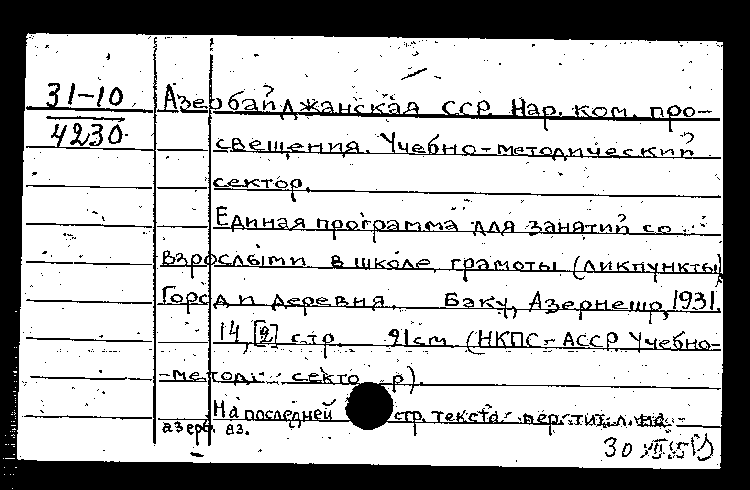 31-10
4230
Азербайджанская ССР. Нар. ком. про-
свещения. Учебно-методический
сектор.
Единая программа для занятий со
взрослыми в школе грамоты (ликпункты)
Город и деревня. Баку, Азернешр, 1931.
14, [2] стр. 21 см. (НКПС - АССР Учебно-
-методи секто р).
На последней стр. текста пер. тит. л. на
азерб. яз.
30